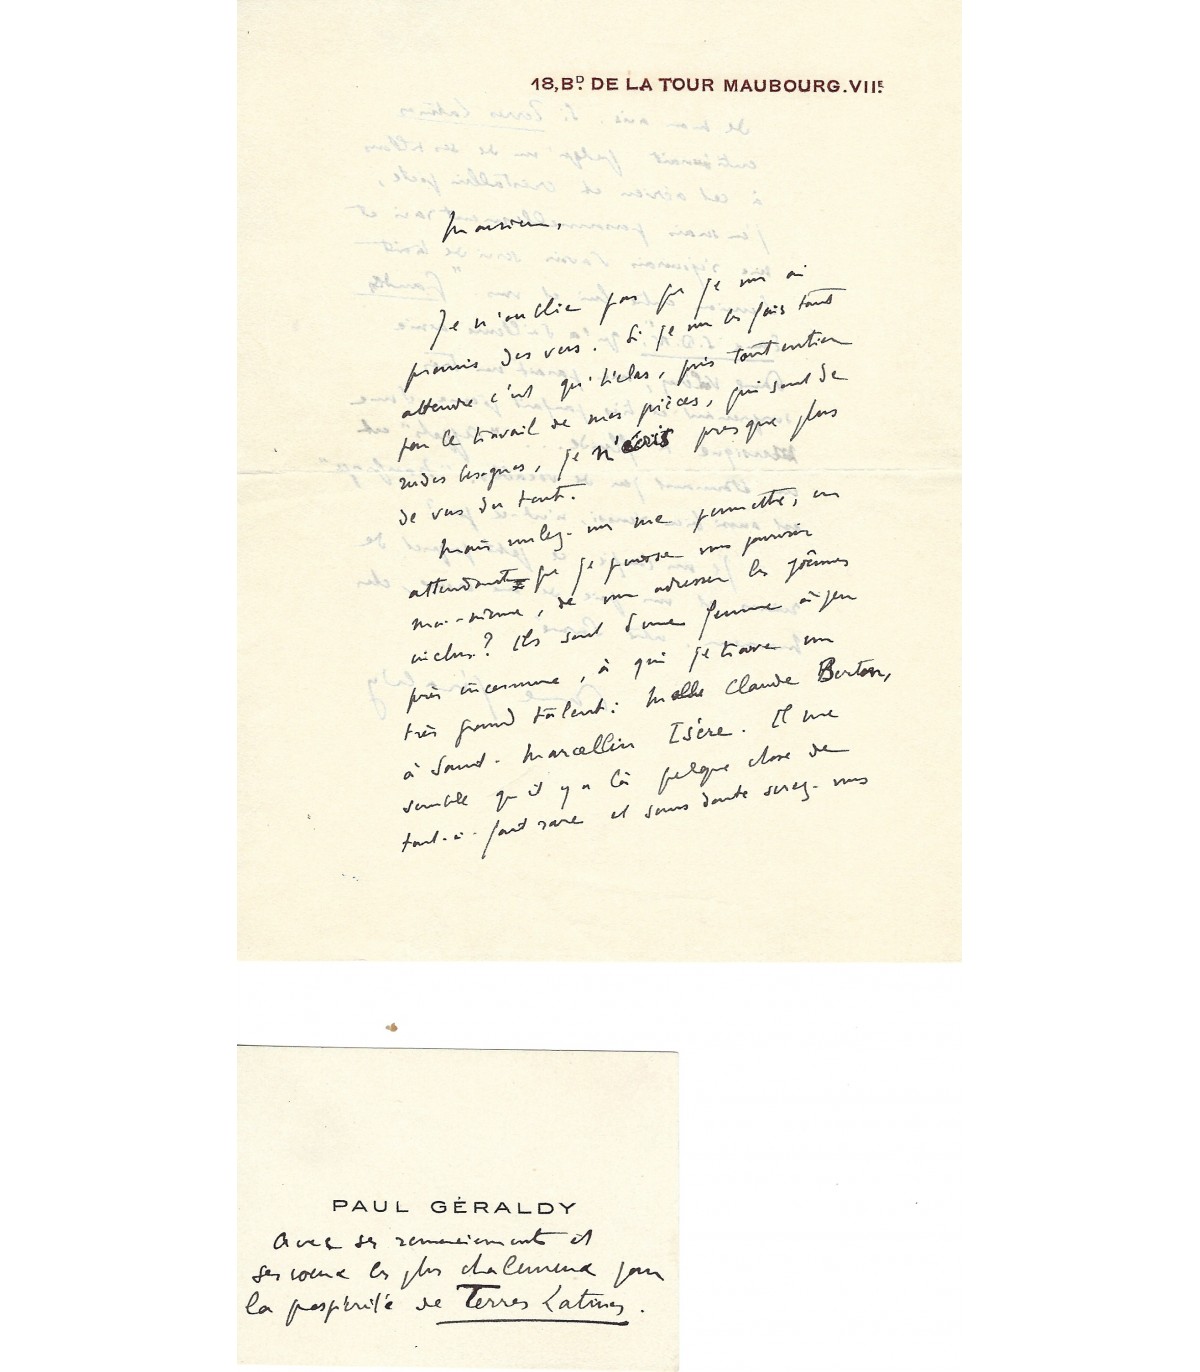 18, BD. DE LA TOUR MAUBOURG. VIIE.
Monsieur,
Je n'oublie pas que je vous ai
promis des vers. Si je vous les fais tant
attendre c'est qu'hélas, pris tout entier
par le travail de mes pièces, qui sont de
rudes besognes, je n'écris presque plus
de vers du tout.
Mais voulez-vous me permettre, en
attendant que je puisse vous fournir
moi-même, de vous adresser les poèmes
inclus? Ils sont d'une femme à peu
près inconnue, à qui je trouve un
très grand talent: Melle Claude Berton,
à Saint-Marcellin Isère. Il me
semble qu'il y a là quelque chose de
tout-à-fait rare et sans doute serez-vous
PAUL GÉRALDY
avec ses remerciements et
ses vœux les plus chaleureux pour
la prospérité de Terres Latines.